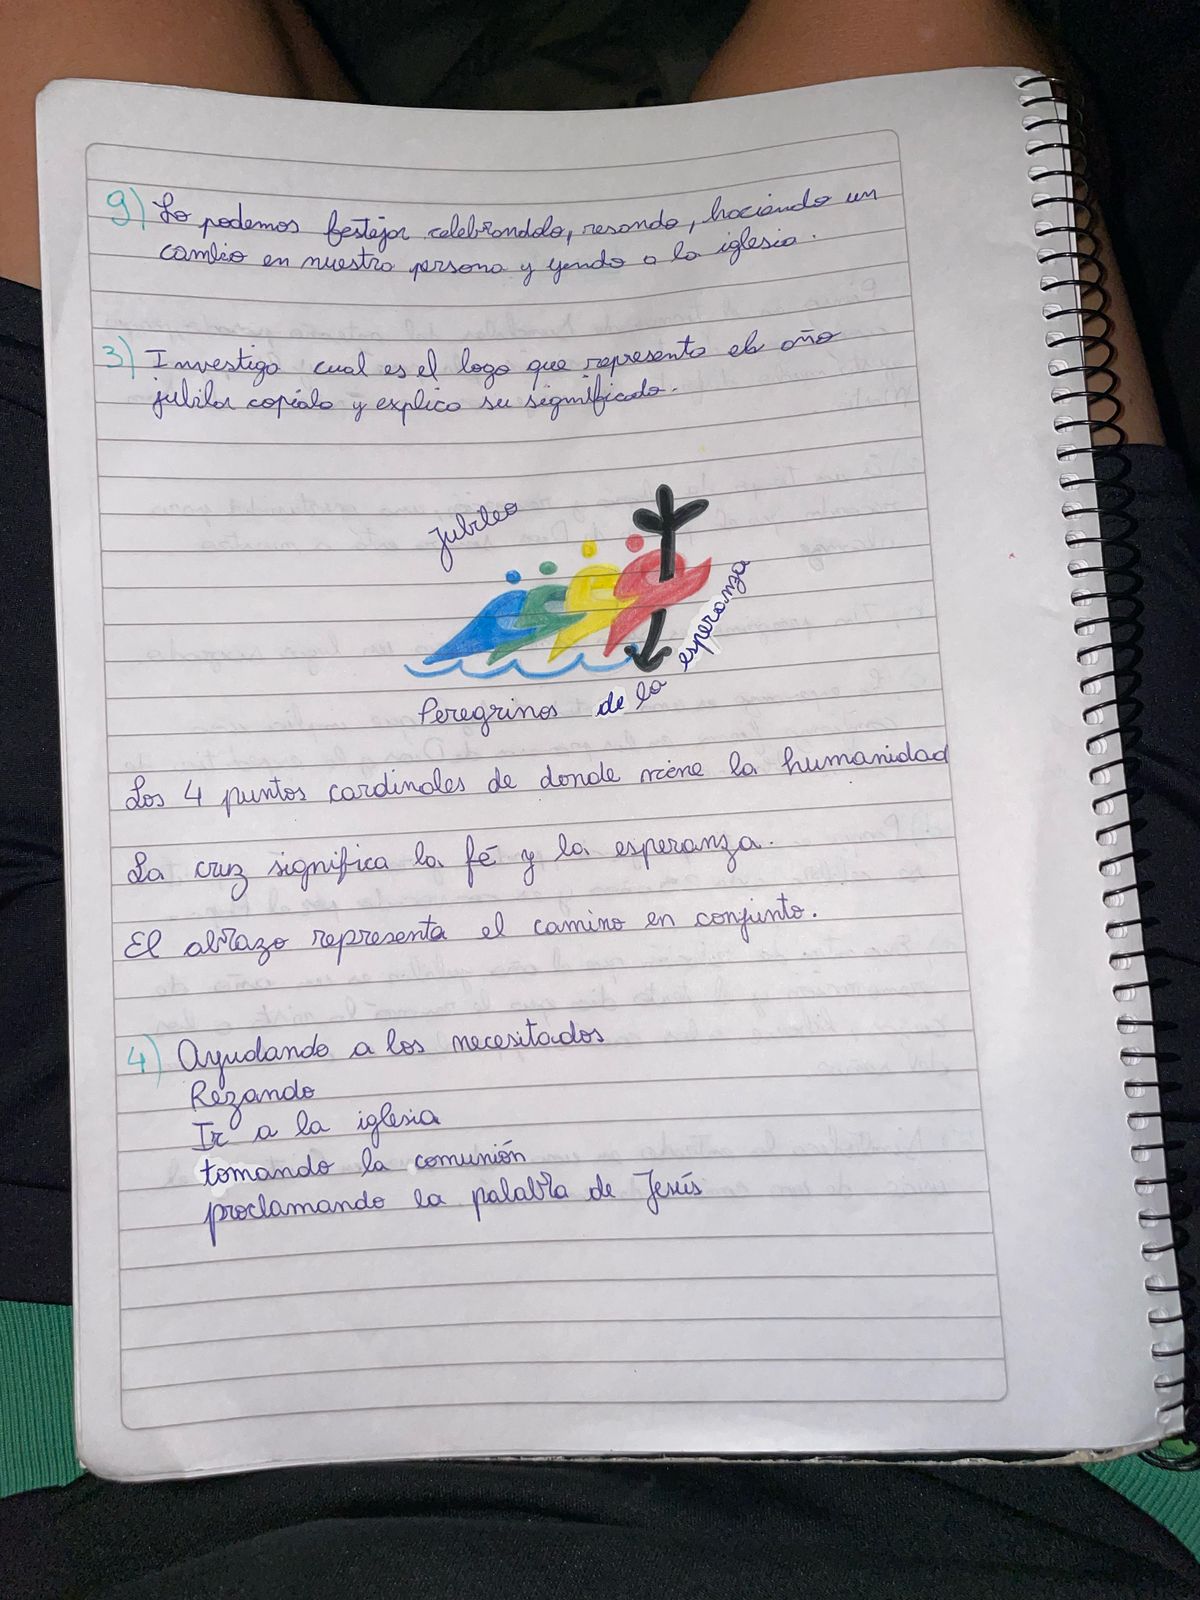 9) Lo podemos festejar celebrandolo, resando, haciendo un
cambio en nuestra persona y yendo a la iglesia.
3) Investiga cual es el logo que representa el año
jubilar copialo y explica su significado.
Jubileo
Peregrinos de la esperanza
Los 4 puntos cardinales de donde viene la humanidad
La cruz significa la fé y la esperanza.
El abrazo representa el camino en conjunto.
4) Ayudando a los necesitados
Rezando
Ir a la iglesia
tomando la comunión
proclamando la palabra de Jesús